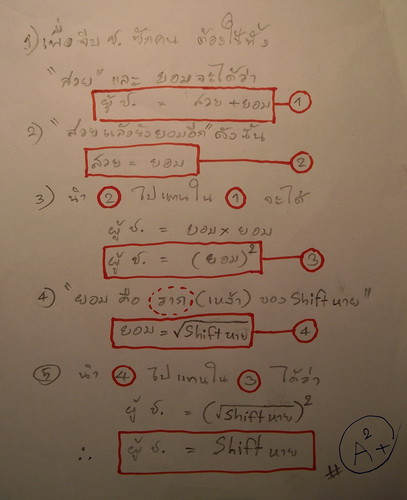 1) เพื่อจีบ ช. ซักคน ต้องใช้ทั้ง
"สวย" และ ยอม จะได้ว่า
ผู้ ช. = สวย + ยอม ①
2) "สวยแล้วยังยอมอีก" ดังนั้น
สวย = ยอม ②
3) นำ ② ไปแทนใน ① จะได้
ผู้ ช. = ยอม × ยอม
ผู้ ช. = (ยอม)² ③
4) "ยอม คือ ราก (เหง้า) ของ Shift หาย"
ยอม = √Shift หาย ④
⑤ นำ ④ ไปแทนใน ③ ได้ว่า
ผู้ ช. = (√Shift หาย)²
∴ ผู้ ช. = Shift หาย
# A²+